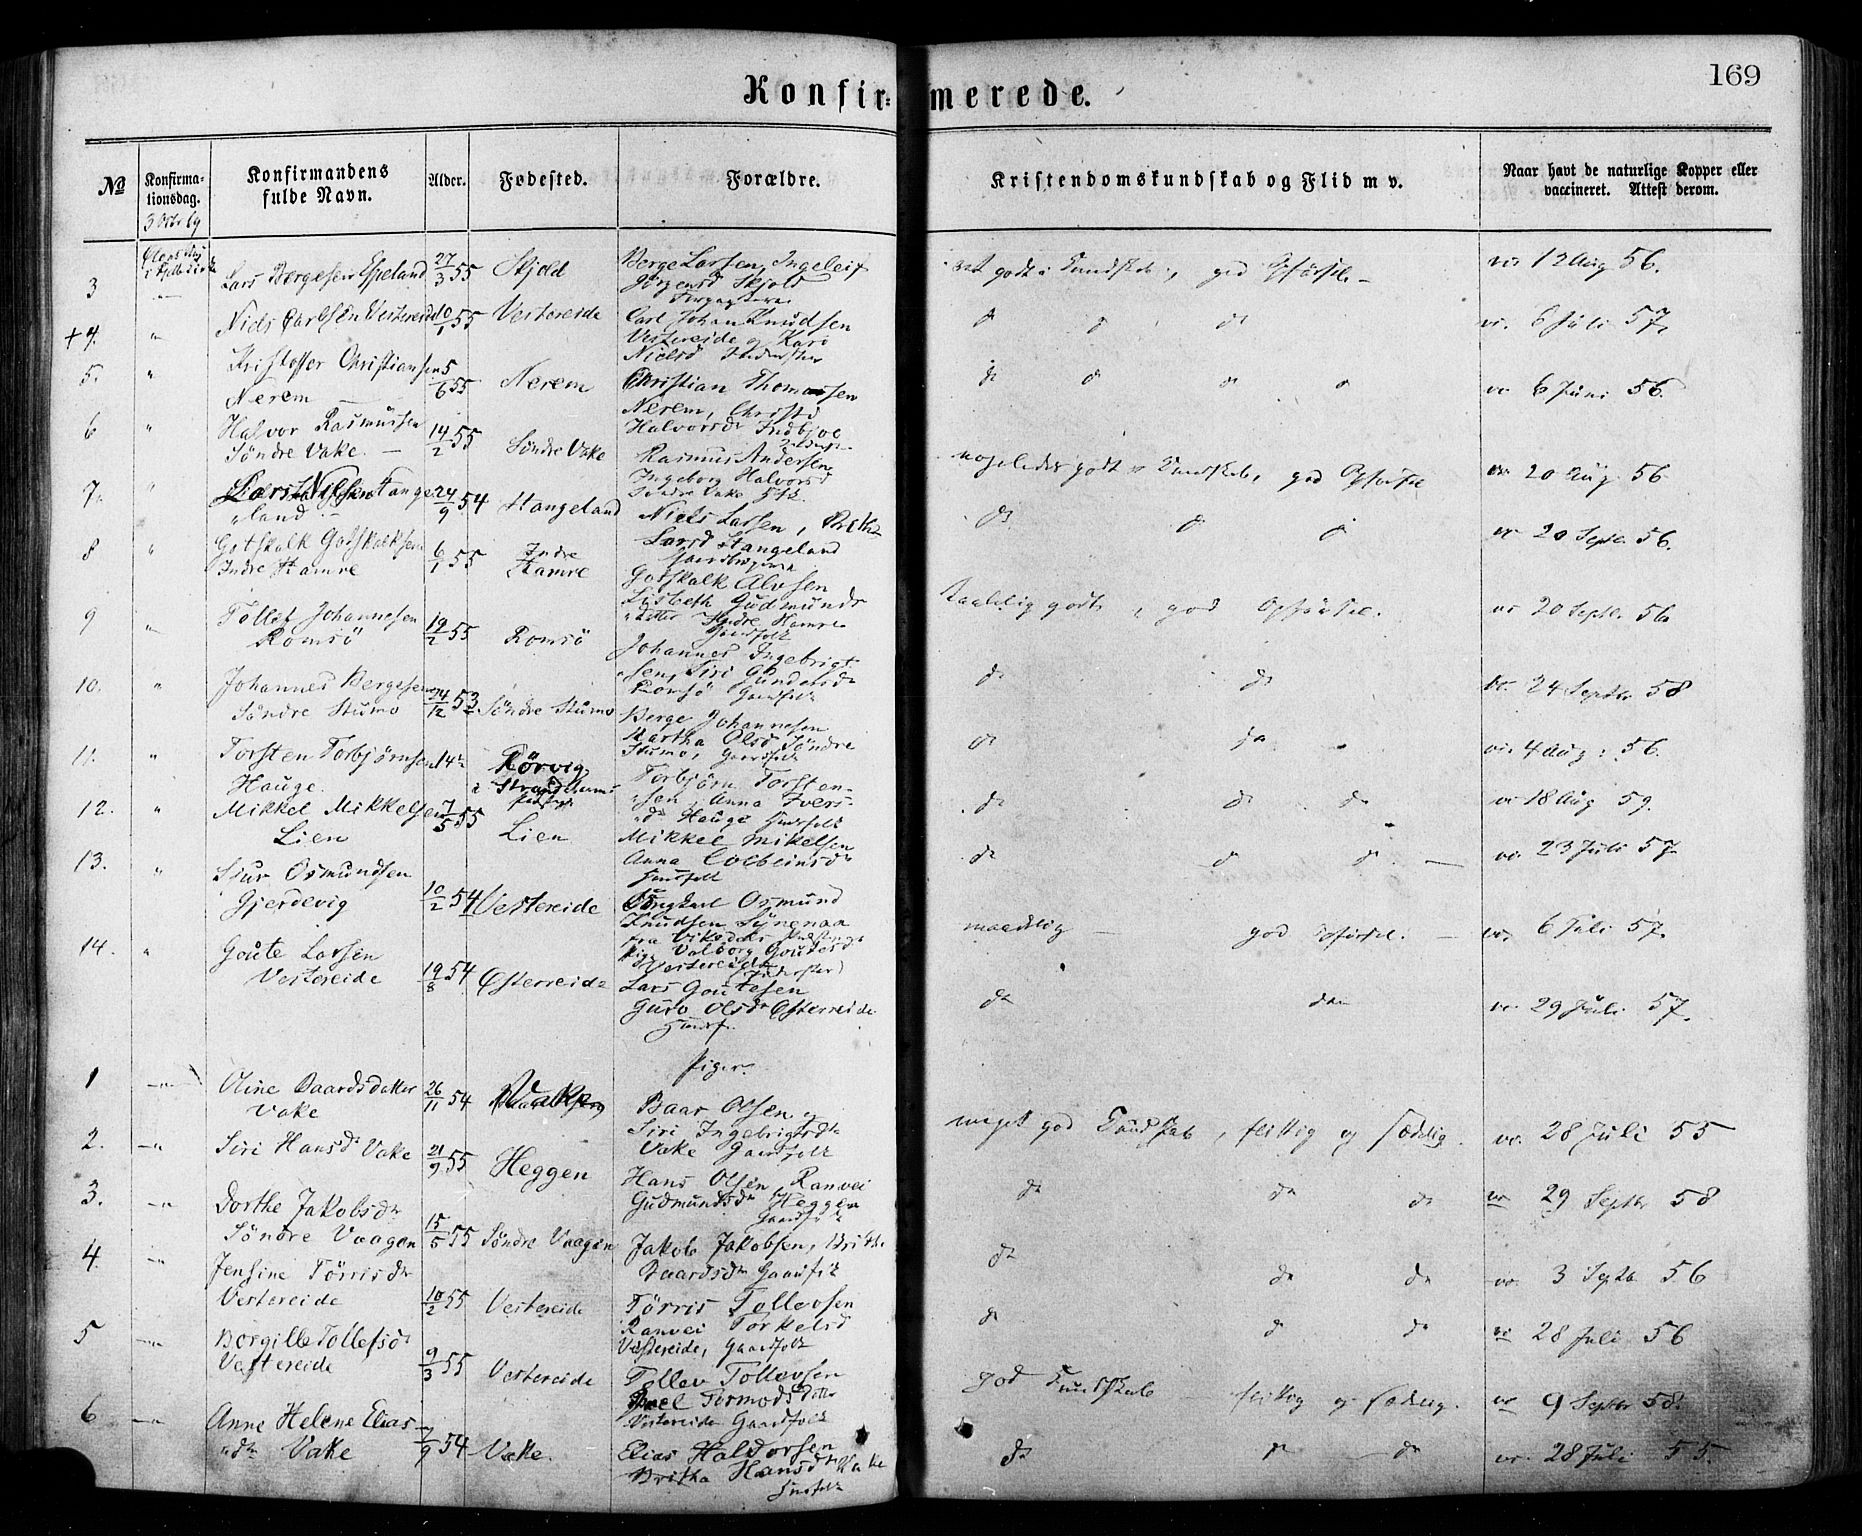 169
Konfir= merede.
№
Konfirma-
tionsdag.
Konfirmandens
fulde Navn.
Alder.
Fødested.
Forældre.
Kristendomskundskab og Flid m v.
Naar havt de naturlige Kopper eller
vaccineret. Attest derom.
3 Octbr 69
3 Lars Bergesen Espeland 27/3 55 Skjold Berge Larsen, Ingeleif
Jørgensd Skjold
god Opførsel vac 12 Aug 56.
+4. " Niels Carlsen Vestereide 10/1 55 Vestereide Carl Johan Knudsen
Vestereide og Kari
Nielsd
d d d vac. 6 Juli 57.
5. " Kristoffer Christiansen
Nerem 5/6 55 Nerem Christian Thomassen
Nerem, Christi
Halvorsdr
d d d d vac 6 Juni 56.
6 " Halvor Rasmussen
Søndre Vake. 14/2 55 Søndre Vake Rasmus Andersen
Ingeborg Halvorsd
Søndre Vake
nogelunde godt Kundskab, god Opførsel vac 20 Aug 56
7. " Lars Nilsen Stange
"land 24/9 54 Stangeland Niels Larsen,
Larsd Stangeland
d d d vac 20 Septr 56.
8 " Gotskalk Gotskalksen
Indre Hamre 6/1 55 Indre
Hamre Gotskalk Alvsen
Lisbeth Gudmunds
"datter Indre Hamre
Gaardfolk
godt, god Opførsel. vac 20 Septr. 56
9 " Tollef Johannesen
Romsö 19/2 55 Romsö Johannes Ingebrigt
"sen, Siri Gundersdr
Romsö Gaardfolk
d d vac 24 Septbr 58
10. " Johannes Bergesen
Söndre Stumo 24/12 53 Söndre Stumo Berge Johannesen
Martha Olsd Söndre
Stumo, Gaardfolk
d d vac 4 Aug: 56.
11. " Torsten Torbjörnsen
Hauge. 14 Rörvig
Torbjörn Torsten-
"sen, Anna Ivers-
"dr Hauge Huusfolk
d d d vac 18 Aug 59.
12. " Mikkel Mikkelsen
Lien 7/5 55 Lien Mikkel Mikelsen
Anna Colbeinsdr
Huusfolk
d d d vac. 23 Juli 57
13. " Siur Osmundsen
Gjerdevig 10/2 54 Vestereide Ungkarl Osmund
Knudsen
fra Vikedals
Pige Valborg Goutesd
Vestereide
maadelig god Opførsel. vac. 6 Juli 57.
14. " Goute Larsen
Vestereide 19/8 54 Østereide Lars Goutesen
Guro Olsdr Østereide
d d vac. 29 Juli 57.
Piger.
1 " Oline Baardsdatter
Vake 26/11 54 Vake Baar Olsen og
Siri Ingebrigtsdr
Vake Gaardfolk
meget god Kundskab, flittig og sædelig. vac. 28 Juli 55
2. " Siri Hansdr Vake 21/9 55 Heggen Hans Olsen, Ranvei
Gudmundsdr Heggen
Gaardfolk
d d d vac 29 Septbr 58
3. " Dorthe Jakobsdr
Söndre Vaagen 15/5 55 Söndre Vaagen Jakob Jakobsen, Brithe
Baardsdr Gaardfolk
d d d vac. 3 Septb 56
4. " Jensine Törrisdr
Vestereide 10/2 55 Vestereide Törris Tollevsen
Ranvei Torkelsd
Vestereide, Gaardfolk
d d d vac 28 Juli 56
5 " Borgille Tollefsdr
Vestereide 9/3 55 Vestereide Tollev Tollevsen
Tormodsdatter
Vestereide Gaardfolk
god Kundskab flittig og sædelig. vac 9 Septbr 58
6 " Anne Helene Elias
"dr Vake 7/9 54 Vake. Elias Haldorsen
Britha Hansdr Vake
Huusfolk
d d d vac. 28 Juli 55.